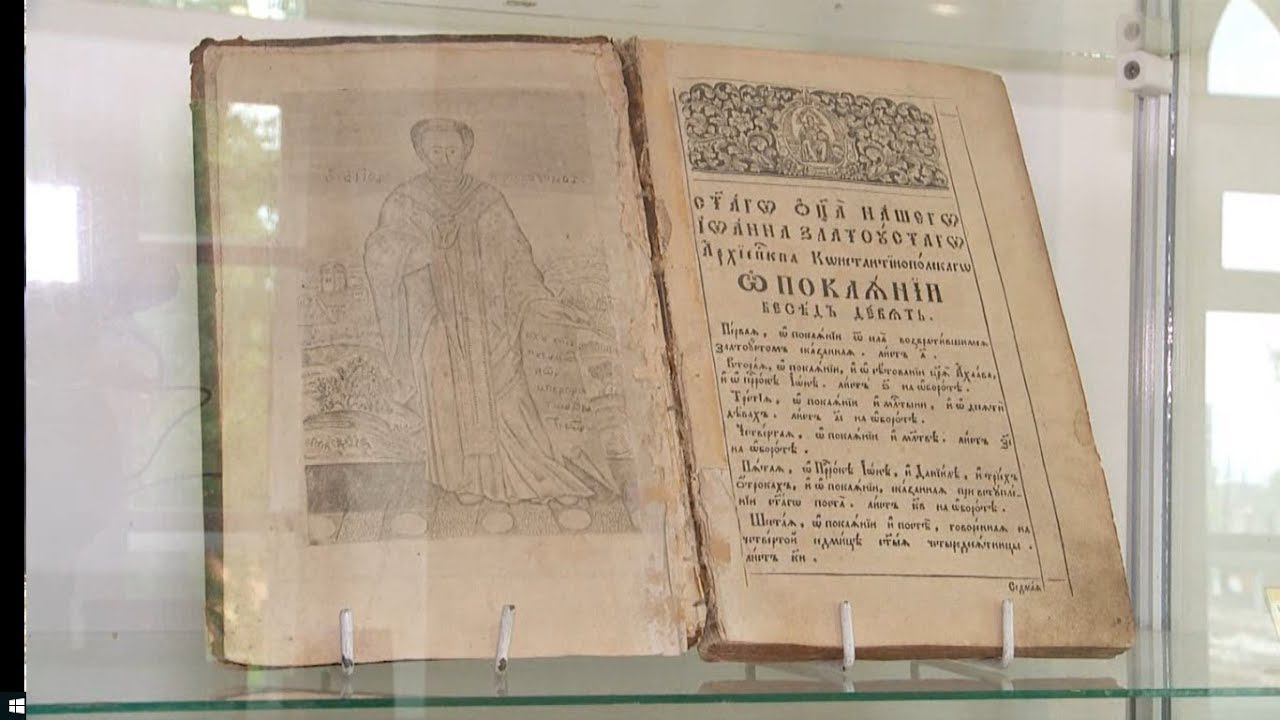 СТ҃А́ГѠ Ѻ҆ЦА̀ НА́ШЕГѠ
І҆ѠА́ННА ЗЛАТОꙊ́СТАГѠ
А҆рхїепⷭ҇кпа Кѡнстантїнопо́лскагѡ
Ѡ҆ ПОКАѦ́НЇИ
БЕСѢ́ДЪ ДЕ́ВѦТЬ.
Пе́рваѧ, ѡ҆ покаѧ́нїи
Златоꙋ́стомъ ска́занная. ли́стъ а҃.
Вторая, ѡ҆ покаѧ́нїи, и҆ ѡ҆ сѣ́тованїи цр҃ѧ̀ А҆хаа́ва,
и҆ ѡ҆ прⷪ҇ро́кѣ І҆ѡ́нѣ. ли́стъ на ѡ҆боро́тѣ.
Тре́тїѧ, ѡ҆ покаѧ́нїи и҆ млⷭ҇тыни, и҆ ѡ҆ десѧтѝ
дѣ́вахъ. ли́стъ на ѡ҆боро́тѣ.
Четве́ртаѧ, ѡ҆ покаѧ́нїи и҆ мл҃твѣ. ли́стъ
на ѡ҆боро́тѣ.
Пѧ́таѧ, ѡ҆ прⷪ҇ро́кѣ І҆ѡ́нѣ, и҆ Данїи́лѣ, и҆ трїе́хъ
ѻ҆́троках, и҆ ѡ҆ покаѧ́нїи, ска́занная при вступле́-
нїи ст҃а́гѡ поста̀. ли́стъ к҃в на ѡ҆боро́тѣ.
Шеста́ѧ, ѡ҆ покаѧ́нїи и҆ постѣ̀, говоренная на
четве́ртой седми́цѣ ст҃ы́ѧ четыредесѧ́тницы.
ли́стъ к҃и.
Седма́ѧ